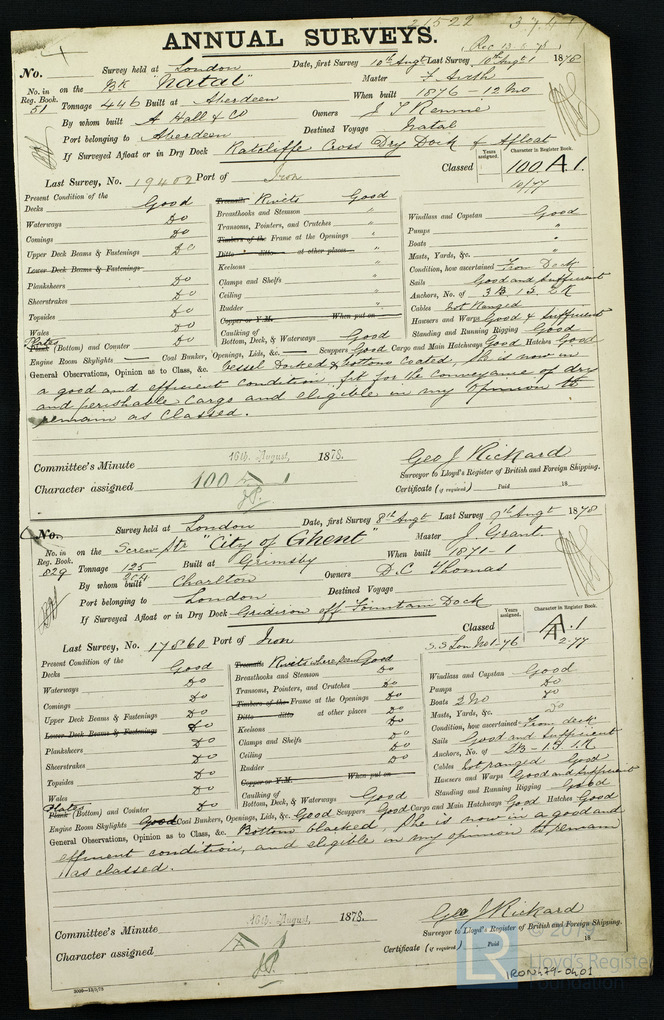 21522
ANNUAL SURVEYS.
Rec 13.8.78
No. Survey held at London Date, first Survey 10th Augt Last Survey 10th Augt 1878
No. in Reg. Book. 51 on the BK "Natal" Master F. Airth
Tonnage 446 Built at Aberdeen When built 1876-12 Mo
By whom built A Hall & Co Owners J T Rennie
Port belonging to Aberdeen Destined Voyage Natal
If Surveyed Afloat or in Dry Dock Ratcliffe Cross Dry Dock & Afloat
Years assigned. Character in Register Book.
Last Survey, No. 19402 Port of Iron Classed 100 A.1.
10/77
Present Condition of the
Decks Good
Waterways Do
Comings Do
Upper Deck Beams & Fastenings Do
Lower Deck Beams & Fastenings
Planksheers Do
Sheerstrakes Do
Topsides Do
Wales Do
Plates
Plank (Bottom) and Counter Do
Treenails Rivets Good
Breasthooks and Stemson "
Transoms, Pointers, and Crutches "
Timbers of the Frame at the Openings "
Ditto ditto at other places "
Keelsons "
Clamps and Shelfs "
Ceiling "
Rudder "
Copper or Y.M. When put on
Caulking of
Bottom, Deck, & Waterways Good
Windlass and Capstan Good
Pumps "
Boats "
Masts, Yards, &c. "
Condition, how ascertained From Deck
Sails Good and Sufficient
Anchors, No. of 3B 1S. 2K
Cables not Ranged
Hawsers and Warps Good & Sufficient
Standing and Running Rigging Good
Engine Room Skylights — Coal Bunker, Openings, Lids, &c. — Scuppers Good Cargo and Main Hatchways Good Hatches Good
General Observations, Opinion as to Class, &c. Vessel Docked & bottom coated, She is now in
a good and efficient condition, fit for the conveyance of dry
and perishable Cargo and eligible in my opinion to
remain as Classed.
Committee's Minute 16th August, 1878.
Geo J Rickard
Surveyor to Lloyd's Register of British and Foreign Shipping.
Character assigned 100 A 1
Certificate (if required) Paid 18
No. Survey held at London Date, first Survey 8th Augt Last Survey 9th Augt 1878
No. in Reg. Book. 829 on the Screw Str "City of Ghent" Master J. Grant.
Tonnage 125 Built at Grimsby When built 1871-1
204
By whom built Charlton Owners D. C Thomas
Port belonging to London Destined Voyage
If Surveyed Afloat or in Dry Dock Gridiron off Fountain Dock
Years assigned. Character in Register Book.
Last Survey, No. 17860 Port of Iron Classed A.1
S.S Lon No1-76 2-77
Present Condition of the
Decks Good
Waterways Do
Comings Do
Upper Deck Beams & Fastenings Do
Lower Deck Beams & Fastenings Do
Planksheers Do
Sheerstrakes Do
Topsides Do
Wales Do
Plates
Plank (Bottom) and Counter Do
Treenails Rivets where seen Good
Breasthooks and Stemson Do
Transoms, Pointers, and Crutches Do
Timbers of the Frame at the Openings Do
Ditto ditto at other places Do
Keelsons Do
Clamps and Shelfs Do
Ceiling Do
Rudder Do
Copper or Y.M. When put on
Caulking of
Bottom, Deck, & Waterways Good
Windlass and Capstan Good
Pumps Do
Boats 2 No Do
Masts, Yards, &c. Do
Condition, how ascertained From deck
Sails Good and Sufficient
Anchors, No. of 2B-1S 1K
Cables not ranged Good
Hawsers and Warps Good and Sufficient
Standing and Running Rigging Good
Engine Room Skylights Good Coal Bunkers, Openings, Lids, &c. Good Scuppers Good Cargo and Main Hatchways Good Hatches Good
General Observations, Opinion as to Class, &c. Bottom blacked, She is now in a good and
efficient condition, and eligible in my opinion to remain
as classed.
Committee's Minute 16th August, 1878.
Geo J Rickard
Surveyor to Lloyd's Register of British and Foreign Shipping.
Character assigned A 1
Certificate (if required) Paid 18
LR © 2019
Lloyd's Register
Foundation
IRON479-0401